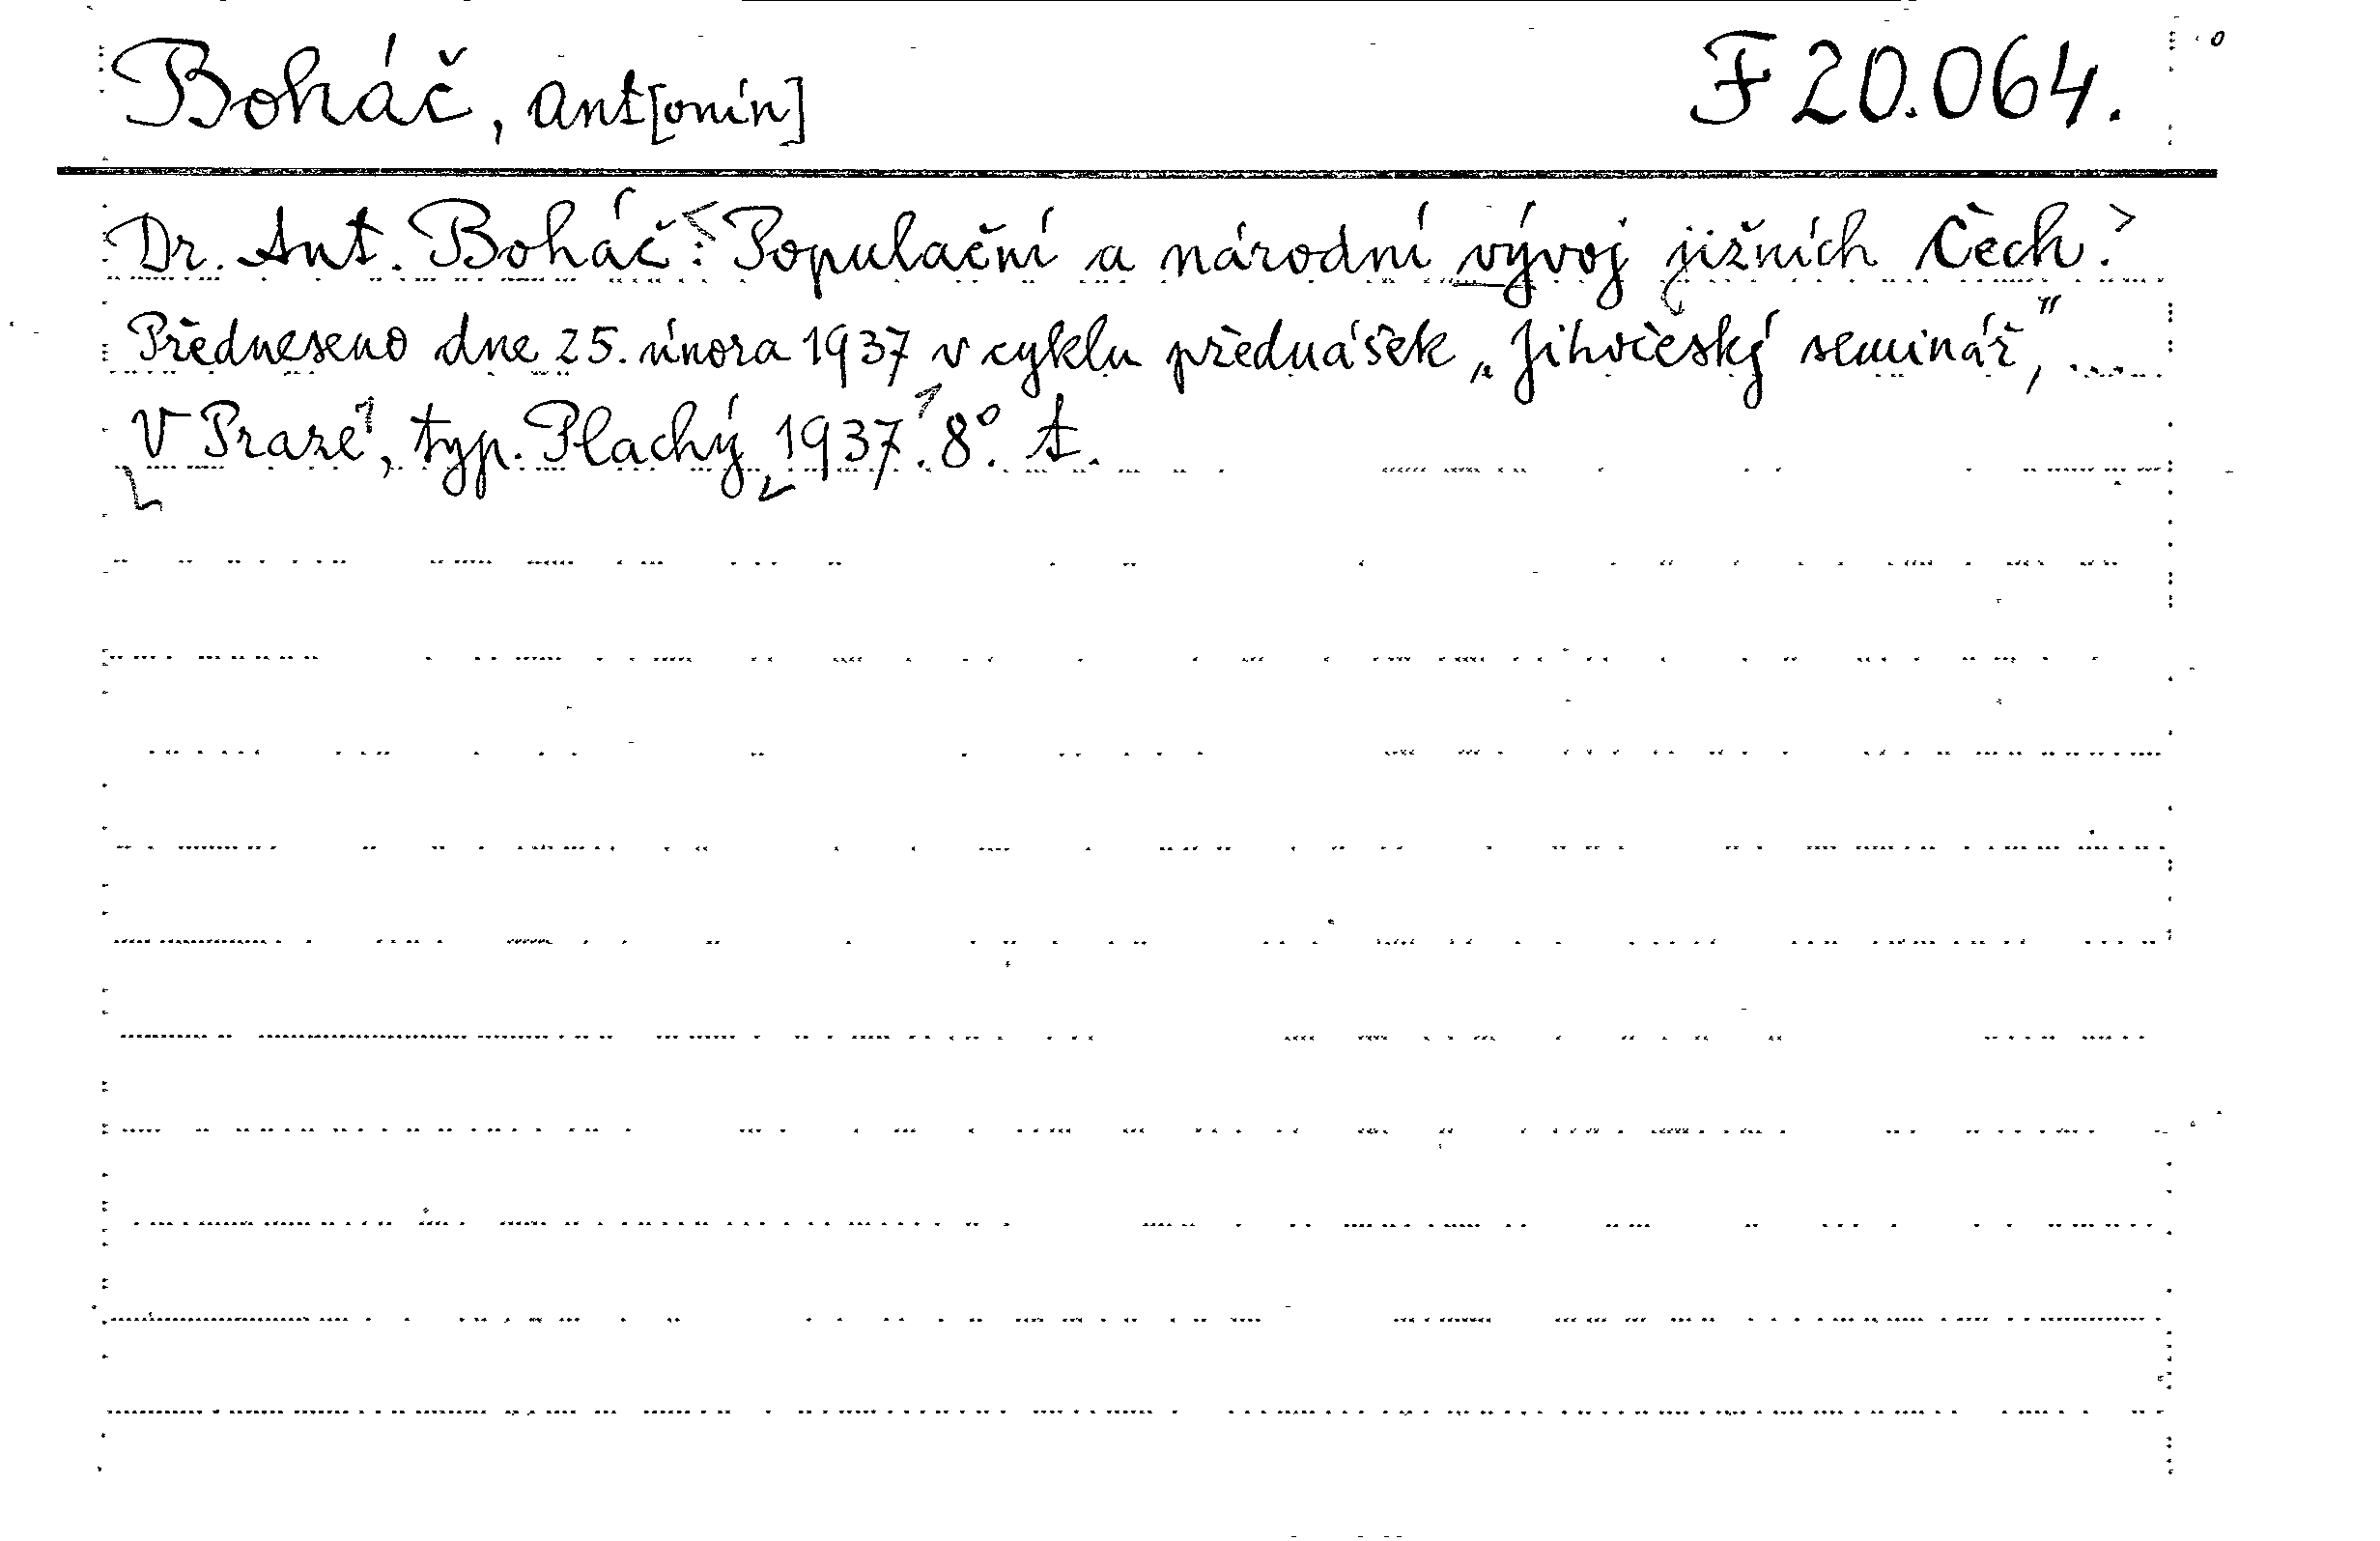 Boháč, Ant[onín] F 20.064.
Dr. Ant. Boháč: <Populační a národní vývoj jižních Čech.>
Předneseno dne 25. února 1937 v cyklu přednášek „Jihočeský seminář", ....
V Praze, typ. Plachý 1937. 8°. t.